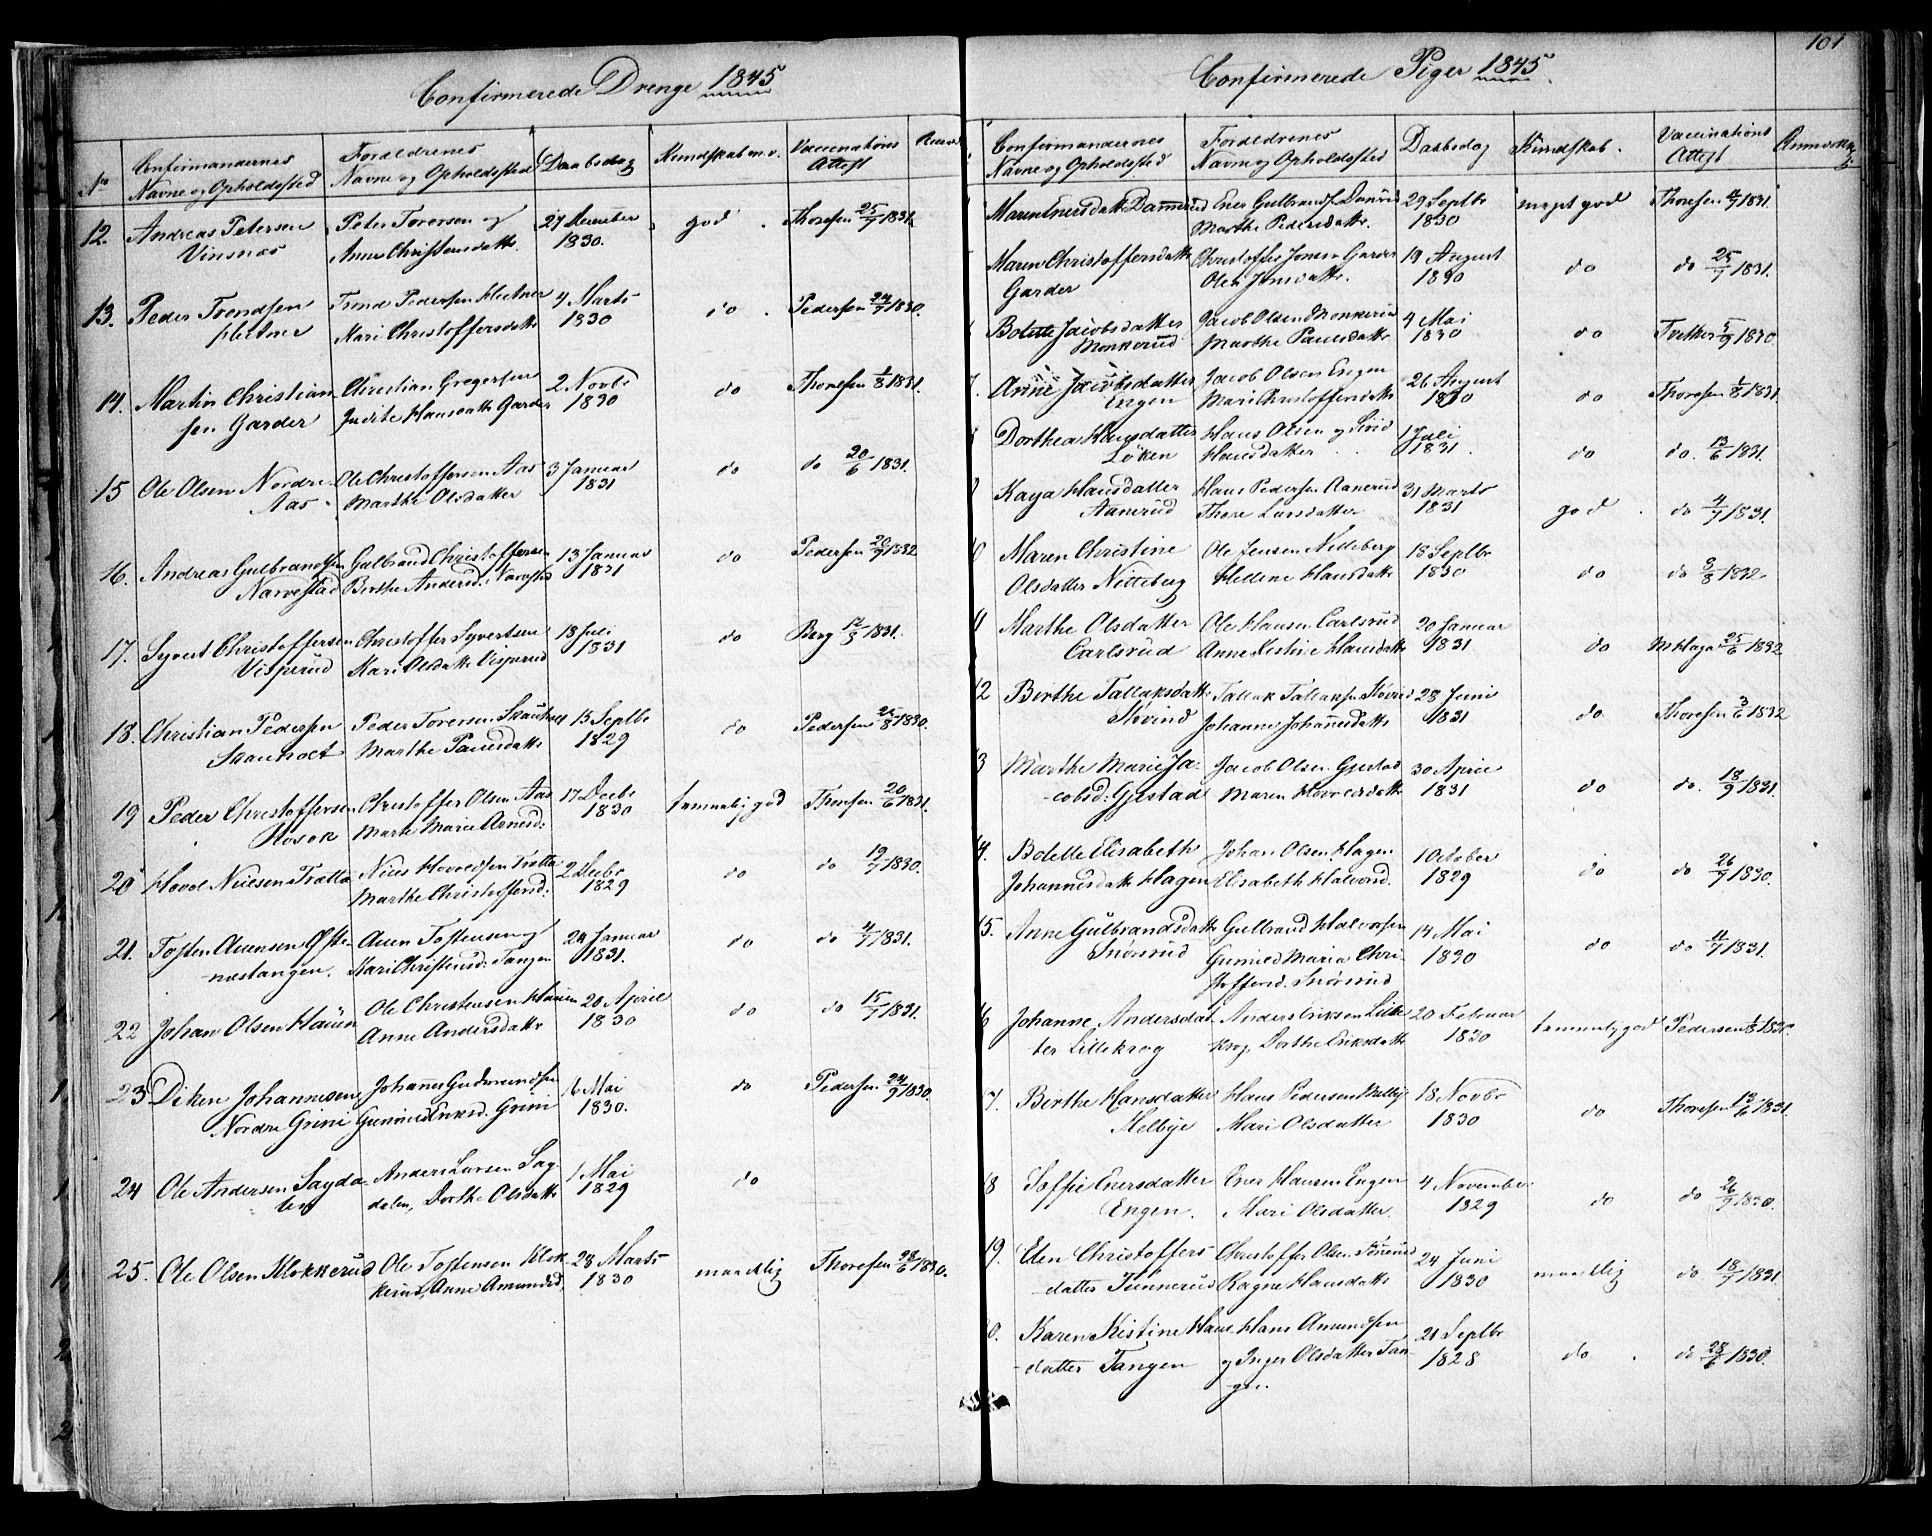 101
Confirmerede Drenge 1845
No
Confirmandernes
Navne og Opholdssted
Forældrenes
Navne og Opholdssted
Daabsdag
Kundskab m. v.
Vaccinations
Attest
12. Andreas Petersen Peter Torersen og 27 December god Thoresen 25/7 1831.
Vinsnæs Anne Christensdatter 1830.
13. Peder Trondsen Trond Pedersen 4 Marts do Pedersen 24/9 1830.
Mari Christoffersdatter 1830
14. Martin Christian- Christian Gregersen 2 Novbr do Thoresen 1/8 1831.
sen Garder Hansdatter Garder 1830
15 Ole Olsen Nordre Ole Christoffersen Aas 3 Januar do do 20/6 1831.
Aas Marthe Olsdatter 1831
16. Andreas Gulbrandsen Gulbrand Christoffersen 13 Januar do Pedersen 20/9 1832
Narvestad Birthe Andersd. Narvestad 1831
17. Syvert Christoffersen Christoffer Syvertsen 18 Juli do Berg 1831.
Visperud Kari Olsdatter Visperud 1831
18. Christian Pedersen Peder Torersen 13 Septbr do Pedersen 25/8 1830.
Skauholt Marthe Paulsdatter 1829
19 Peder Christoffersen Christoffer Olsen Aas 17 Decbr temmelig god Thoresen 20/6 1831.
Marie Arnesd: 1830
20 Hovel Nielsen Trætta Niels Hovelsen Trætta 2 Decbr do do 19/7 1830.
Marthe Christoffersd: 1829
21. Tosten Auensen Auen Tostensen og 24 Januar do do 4/7 1831.
næstangen. Kari Christensd: Tangen 1831.
22 Johan Olsen Hauen Ole Christensen Hauen 20 April do do 15/7 1831.
Anne Andersdatter 1830
23 Johannesen Johannes Gudmundsen 6 Mai do Pedersen 24/9 1830.
Nordre Grini Grini 1830.
24 Ole Andersen Sagda- Anders Larsen Sag- 1 Mai do
len dalen, Dorthe Olsdatter 1829
25. Ole Olsen Klokkerud Ole Tostensen Klok- 28 Marts maadelig Thoresen 28/6 1830.
kerud, Anne Amundsd. 1830
Confirmerede Piger 1845.
Confirmandernes
Navne og Opholdssted
Forældrenes
Navne og Opholdssted
Daabsdag
Kundskab.
Vaccinations
Attest
Maren Enersdatter Ener Gulbrands. 29 Septbr meget god Thoresen 4/7 1831.
Marthe Pedersdatter. 1830
Maren Christoffersdatter Christoffer Jonsen Garder 19 August do do 25/7 1831.
Garder Jonsdatter. 1830
Bolette Jacobsdatter Jacob Olsen Monkerud 4 Mai do 5/9 1830
Monkerud Marthe Paulsdatter 1830
7. Anne Jacobsdatter Jacob Olsen Engen 26 August do Thoresen 1/8 1831
Engen Mari Christoffersdatter 1830
Dorthea Hansdatter Hans Olsen og Siri 1 Juli do do. 13/6 1831.
Løken Hansdatter 1831.
Kaya Hansdatter Hans Pedersen Aanerud 31 Marts god do 4/7 1831.
Aanerud Thore Larsdatter 1831
10 Maren Christine Ole Jensen Nitteberg 18 Septbr do do 3/8 1832
Olsdatter Nitteberg Hellene Hansdatter 1830
11 Marthe Olsdatter Ole Hansen Carlsrud 20 Januar do 25/6 1832
Carlsrud Anne Kistine Hansdatter 1831
12 Birthe Tallaksdatter Tallak Tallaksen 28 Juni do Thoresen 3/6 1832
Hovind Johanne Johannesdatter 1831
3 Marthe Marie Ja- Jacob Olsen Gjestad 30 April do do. 18/9 1831.
cobsd: Gjestad Maren 1831
4. Bolette Elisabeth Johan Olsen Hagen 1 October do do 26/7 1830.
Johannesdatter Hagen Elisabeth Halvorsd. 1829
15. Anne Gulbrandsdatter Gulbrand Halvorsen 14 Mai do do 4/7 1831.
Snørsrud Gunnild Maria Chri- 1830
stoffersd. Snørsrud
6 Johanne Andersdat- Anders Eriksen Lille 20 Februar temmelig god Pedersen 1/8 1830.
ter Lillekrog krog, Dorthe Eriksdatter 1830
7. Birthe Hansdatter Hans Pedersen Melbye 18 Novbr do Thoresen 13/6 1831.
Melbye Mari Olsdatter 1830
8 Soffie Enersdatter Ener Hansen Engen 4 November do do 26/7 1830.
Engen. Mari Olsdatter. 1829
19. Elen Christoffers Christoffer Olsen 24 Juni maadelig do 18/7 1831
datter Tunnerud Ragne Hansdatter 1830
0. Karen Kistine Hans Hans Amundsen 21 Septbr do do 28/6 1830.
datter Tangen og Inger Olsdatter Tan- 1828
gen.